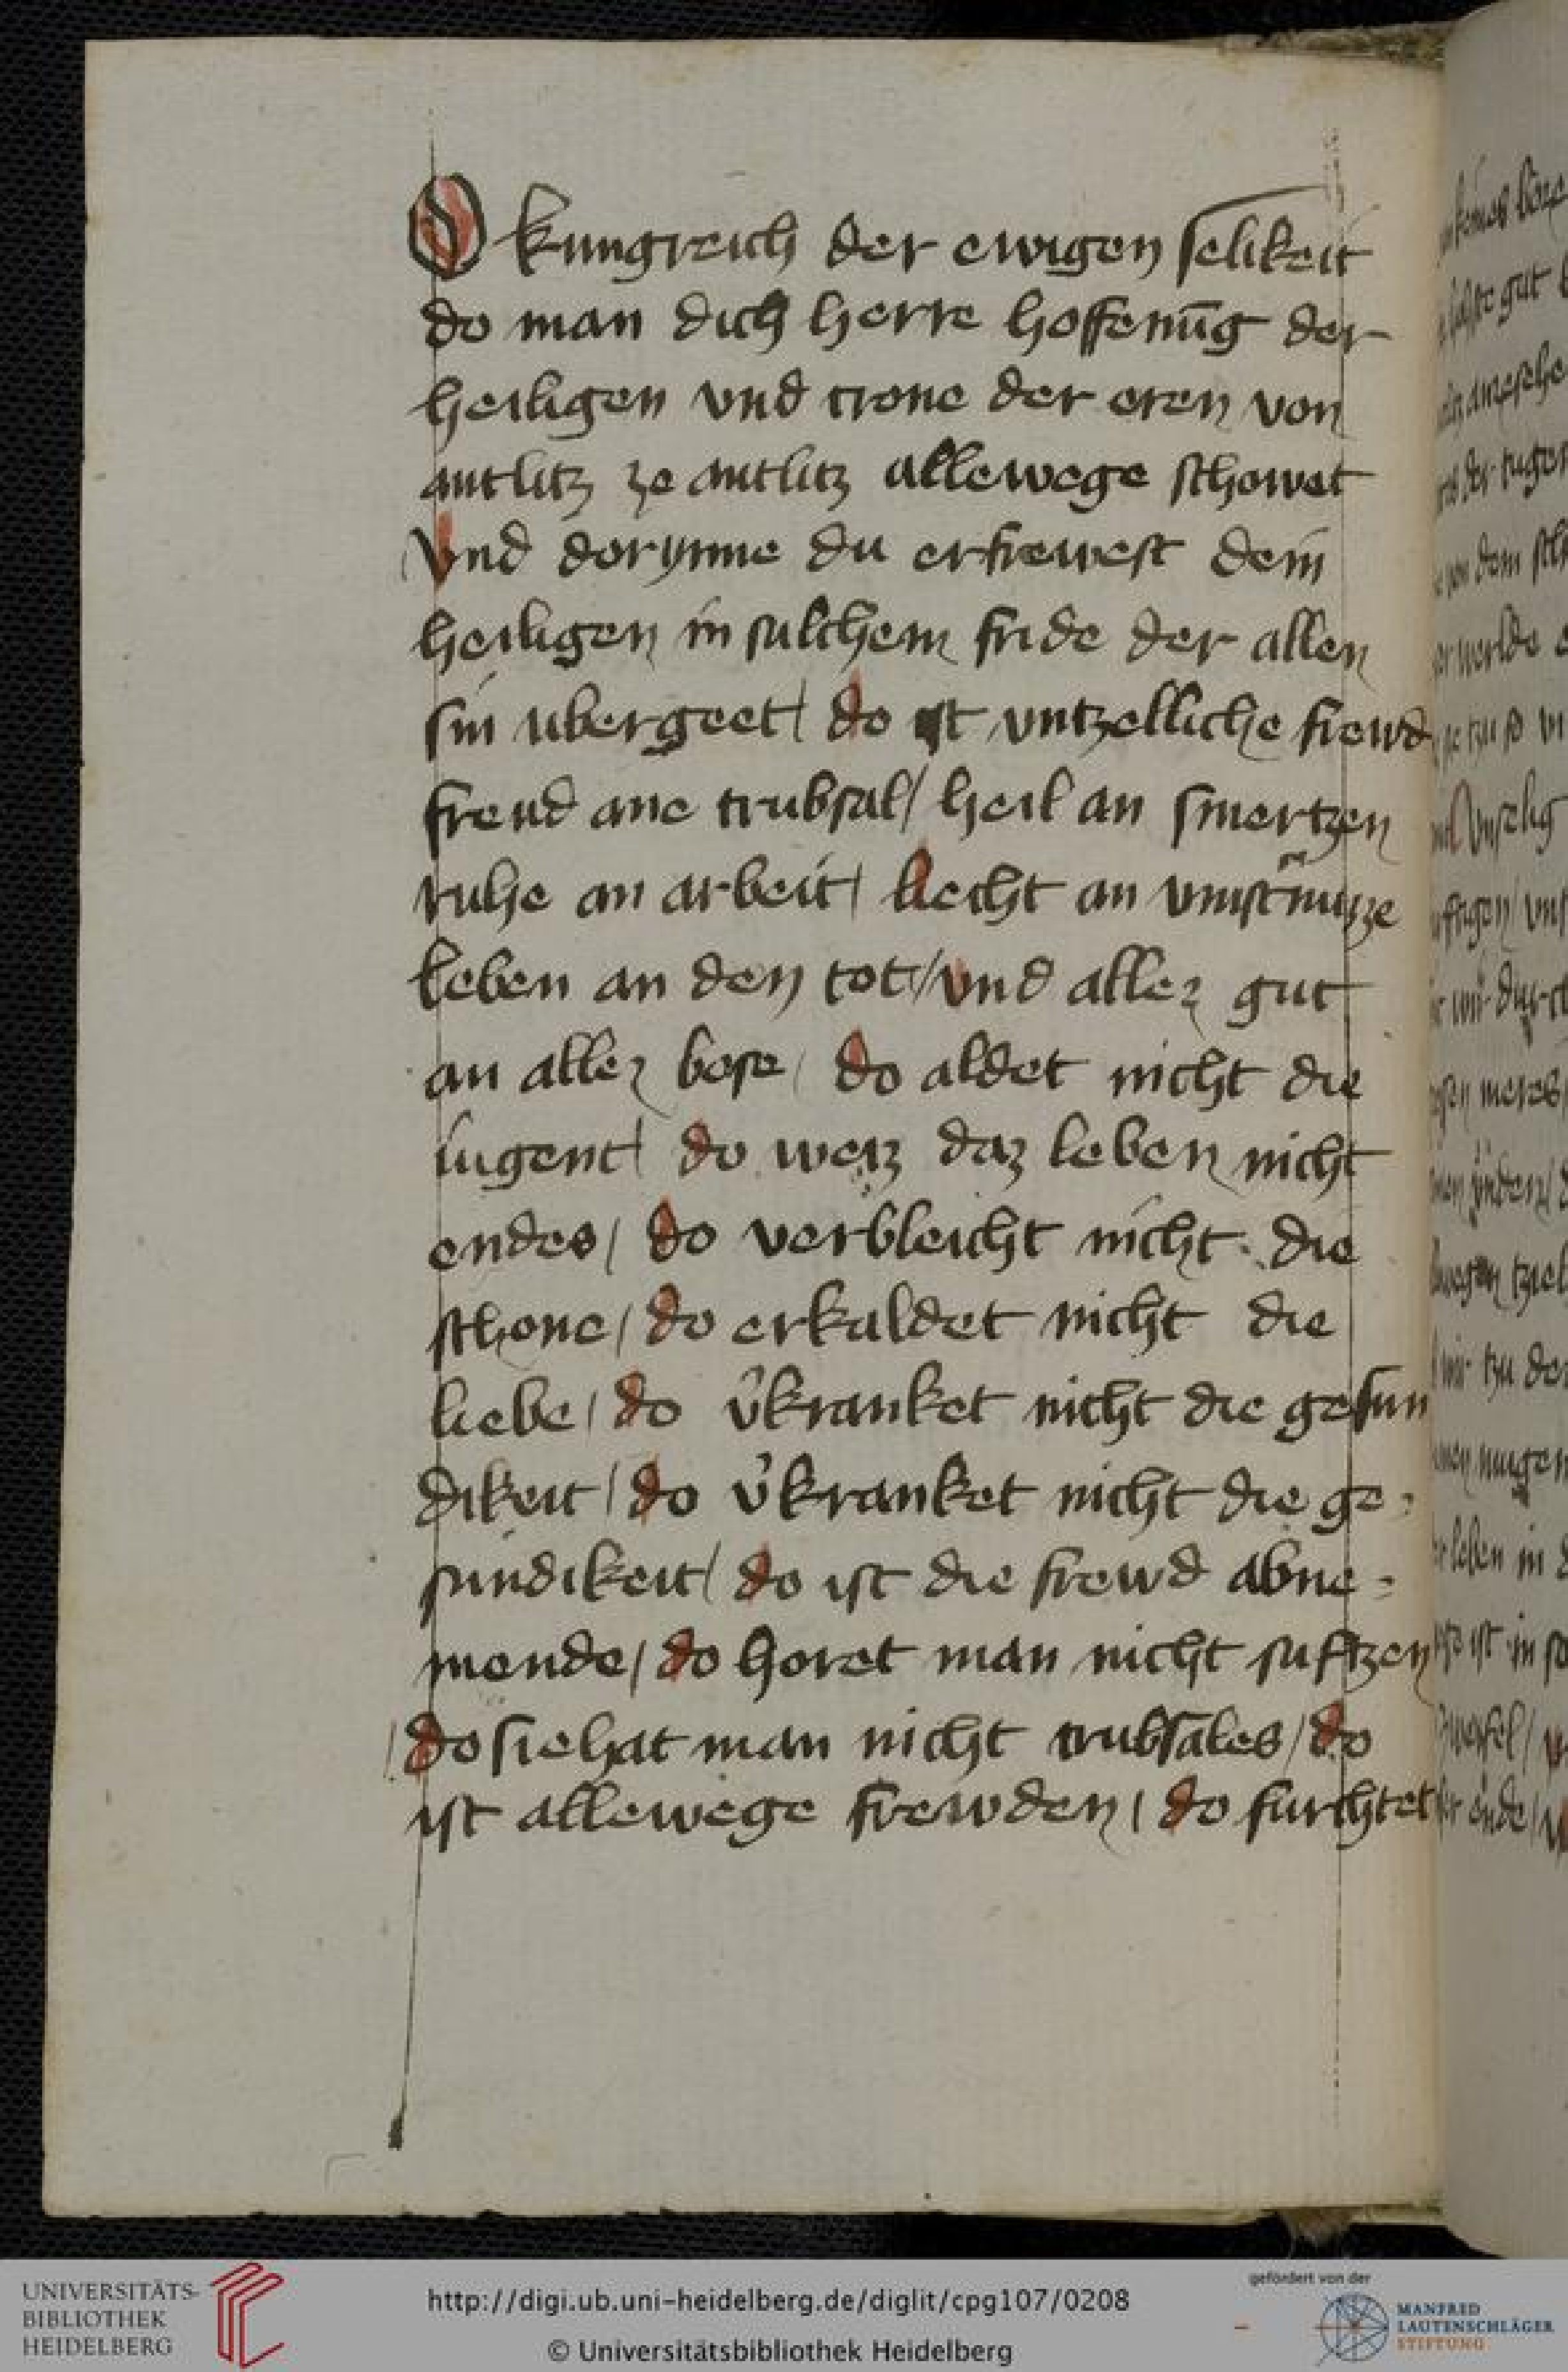 O kungreich der ewigen selikeit
do man dich herre hoffenūg der
heiligen vnd crone der eren von
antlitz ze antlitz allewege schowet
vnd dorynne du erfrewest dein
heiligen in sulchem fride der allen
sin ubergeet / do ist vntzelliche frewd
freud ane trubsal / heil an smertzen
ruhe an arbeit / liecht an
leben an den tot / vnd allez gut
an allez bose / do aldet nicht die
iugent / do weiz daz leben nicht
endes / do verbleicht nicht die
schone / do erkaldet nicht die
liebe / do v̓kranket nicht die gesun
dikeit / do v̓kranket nicht die ge⸗
sundikeit / do ist die frewd abne⸗
mende / do horet man nicht suftzen
/ do siehat man nicht trubsales / do
ist allewege frewden / do furchtet
UNIVERSITÄTS-
BIBLIOTHEK
HEIDELBERG
http://digi.ub.uni-heidelberg.de/diglit/cpg107/0208
© Universitätsbibliothek Heidelberg
gefördert von der
MANFRED
LAUTENSCHLÄGER
STIFTUNG